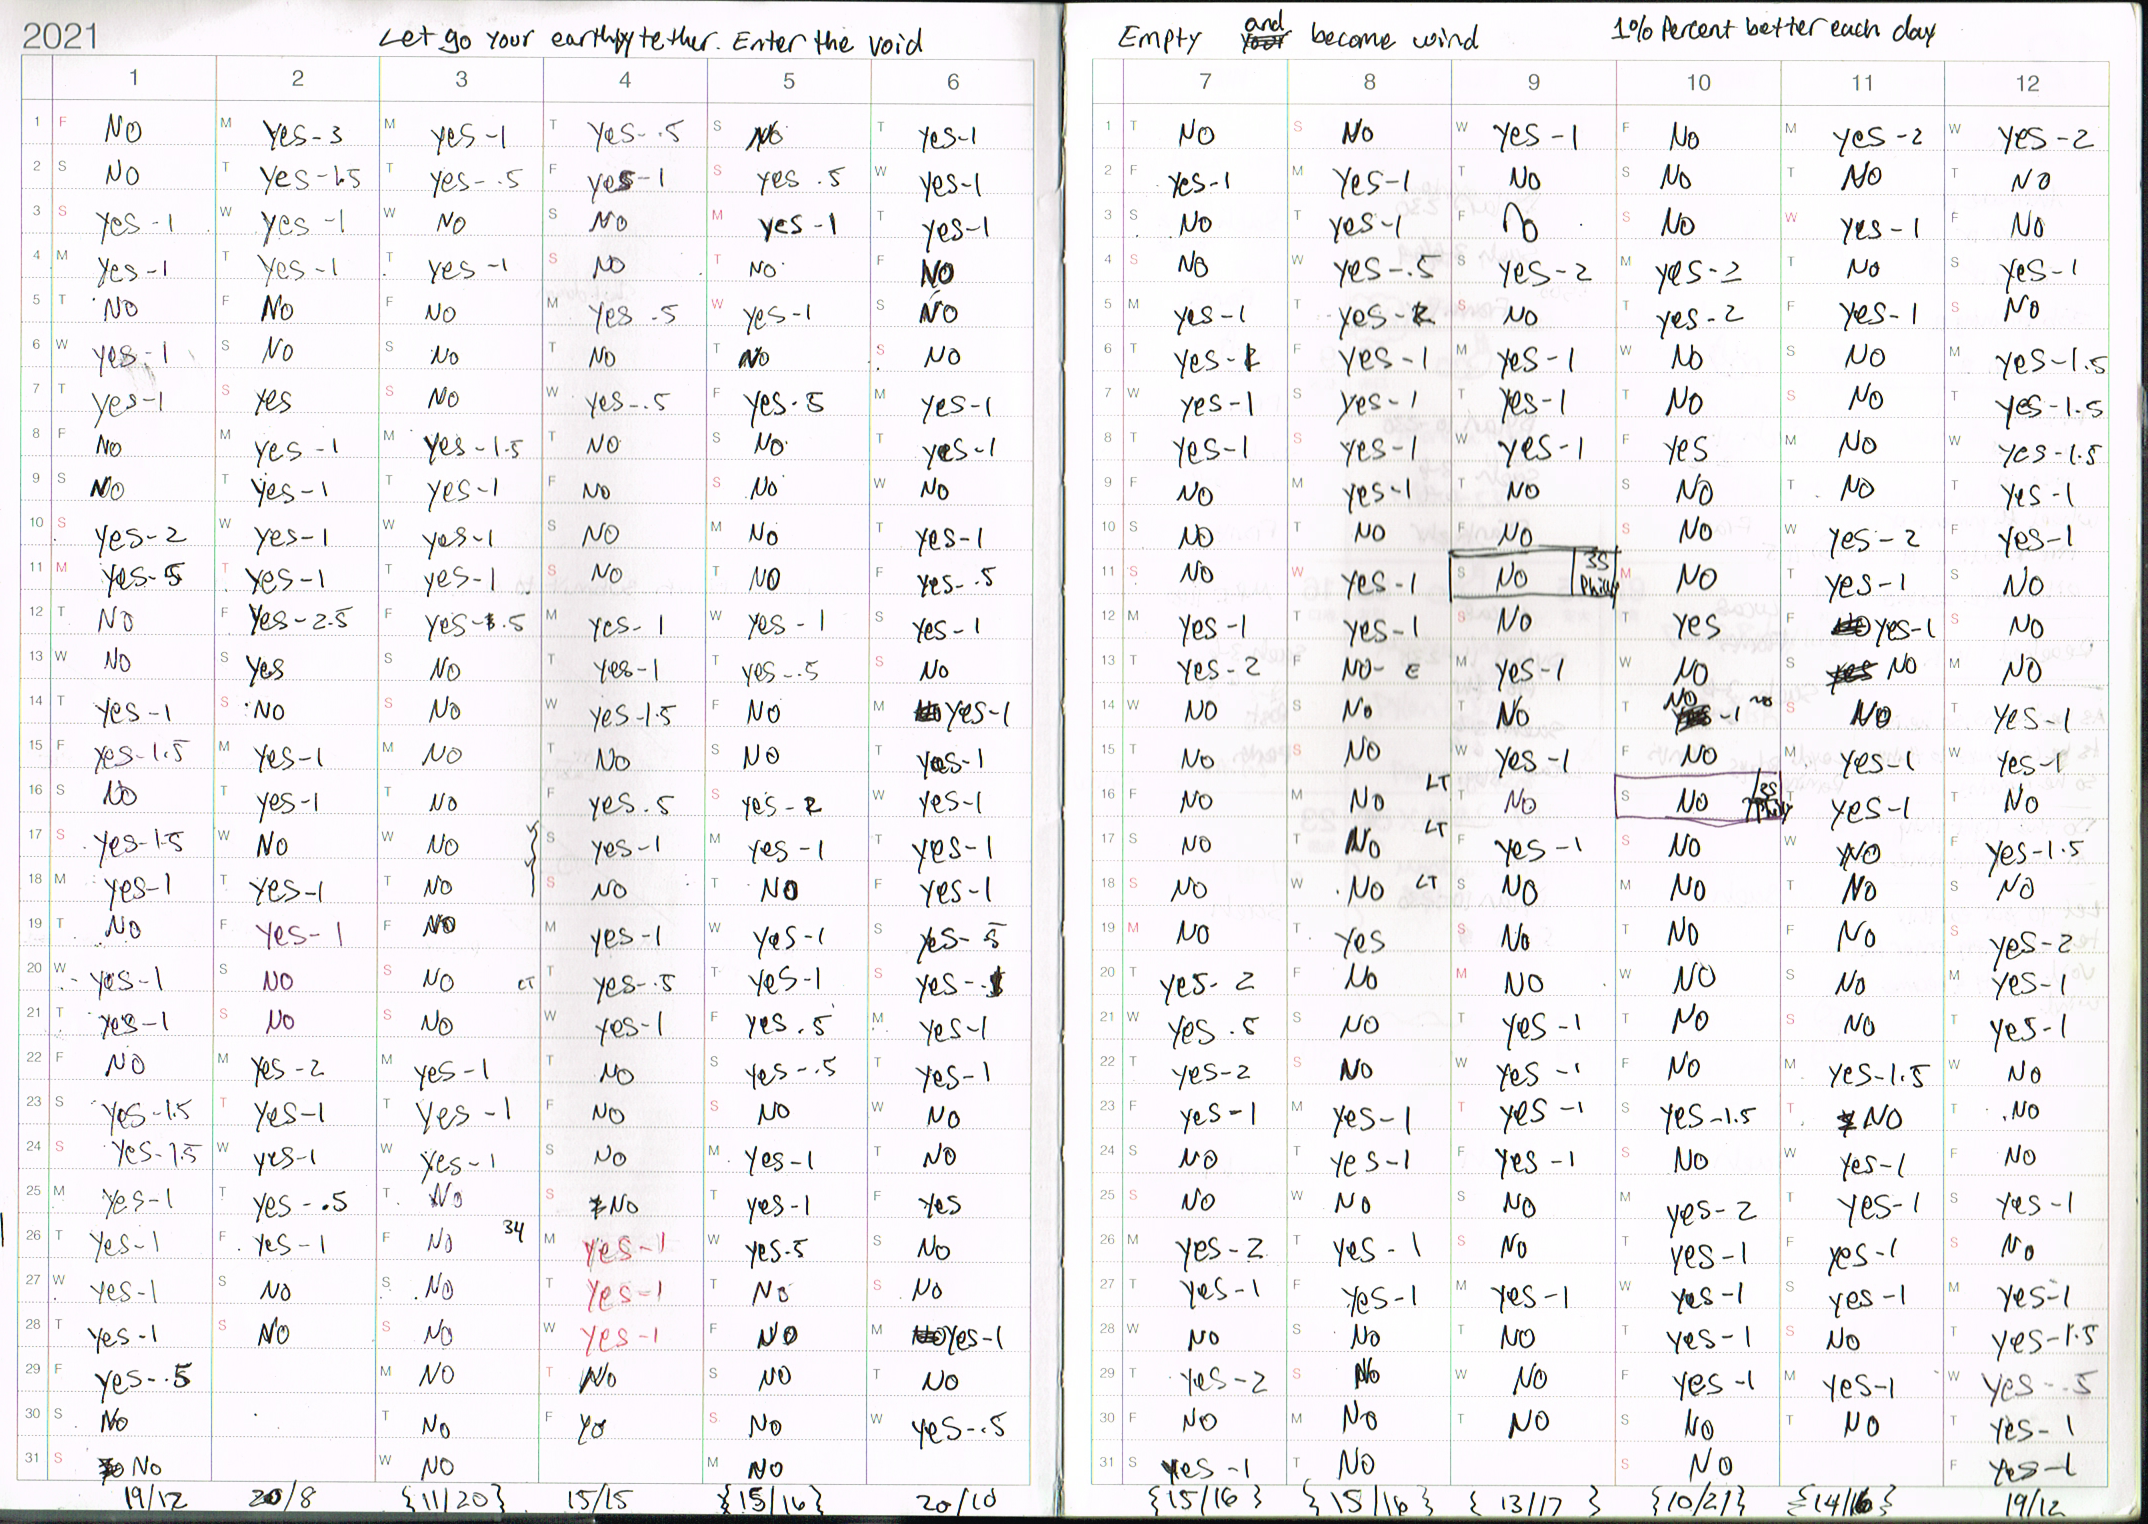 2021 Let go your earthly tether. Enter the void Empty and become wind 10% Percent better each day
1 2 3 4 5 6 7 8 9 10 11 12
1 F NO M Yes-3 M yes-1 T Yes-.5 S No T yes-1 1 T NO S NO W Yes-1 F No M yes-2 W Yes-2
2 S NO T Yes-1.5 T yes-.5 F yes-1 S yes .5 W yes-1 2 F yes-1 M Yes-1 T No S No T No T NO
3 S yes-1 W Yes-1 W NO S NO M yes-1 T yes-1 3 S No T yes-1 F No S No W yes-1 F No
4 M yes-1 T Yes-1 T yes-1 S NO T NO F NO 4 S No W yes-.5 S yes-2 M yes-2 T No S yes-1
5 T NO F No F NO M Yes .5 W yes-1 S NO 5 M yes-1 T yes- S NO T yes-2 F yes-1 S No
6 W yes-1 S No S No T No T No S NO 6 T yes- F yes-1 M yes-1 W No S No M yes-1.5
7 T yes-1 S Yes S NO W yes-.5 F yes.5 M yes-1 7 W yes-1 S yes-1 T yes-1 T NO S No T yes-1.5
8 F No M yes-1 M yes-1.5 T NO S No T yes-1 8 T yes-1 S yes-1 W yes-1 F yes M No W yes-1.5
9 S NO T Yes-1 T yes-1 F NO S No W No 9 F No M yes-1 T NO S NO T No T Yes-1
10 S yes-2 W yes-1 W yes-1 S NO M No T yes-1 10 S No T NO F NO S No W yes-2 F yes-1
11 M yes-5 T yes-1 T yes-1 S NO T NO F yes-.5 11 S NO W yes-1 S NO 35 Philly M NO T yes-1 S NO
12 T NO F Yes-2.5 F yes-.5 M yes-1 W yes-1 S yes-1 12 M yes-1 T yes-1 S NO T yes F yes-1 S NO
13 W No S yes S NO T yes-1 T yes-.5 S No 13 T yes-2 F NO- M yes-1 W NO S NO M NO
14 T yes-1 S NO S NO W yes-1.5 F NO M yes-1 14 W NO S No T NO T NO -1 no S NO T yes-1
15 F yes-1.5 M yes-1 M NO T No S NO T yes-1 15 T No S NO W yes-1 F NO M yes-1 W yes-1
16 S NO T yes-1 T NO F yes.5 S yes- W yes-1 16 F NO M NO LT T NO S NO 35 Philly T yes-1 T No
17 S yes-1.5 W NO W NO S yes-1 M yes-1 T yes-1 17 S NO T No LT F yes-1 S NO W NO F yes-1.5
18 M yes-1 T yes-1 T NO S NO T NO F yes-1 18 S NO W NO LT S NO M NO T No S NO
19 T NO F Yes-1 F NO M yes-1 W yes-1 S yes-5 19 M NO T yes S No T No F No S yes-2
20 W yes-1 S NO S NO T yes-.5 T yes-1 S yes- 20 T yes-2 F No M NO W NO S No M yes-1
21 T yes-1 S NO S NO W yes-1 F yes.5 M yes-1 21 W yes.5 S NO T yes-1 T NO S NO T yes-1
22 F NO M yes-2 M yes-1 T No S yes-.5 T yes-1 22 T yes-2 S No W yes-1 F No M yes-1.5 W No
23 S yes-1.5 T yes-1 T yes-1 F NO S NO W NO 23 F yes-1 M yes-1 T yes-1 S yes-1.5 T NO T NO
24 S yes-1.5 W yes-1 W yes-1 S NO M yes-1 T NO 24 S NO T yes-1 F yes-1 S NO W yes-1 F No
25 M yes-1 T yes-.5 T No S NO T yes-1 F yes 25 S NO W No S NO M yes-2 T yes-1 S yes-1
26 T yes-1 F yes-1 F NO 34 M yes-1 W yes-5 S NO 26 M yes-2 T yes-1 S No T yes-1 F yes-1 S No
27 W yes-1 S NO S NO T yes-1 T No S NO 27 T yes-1 F yes-1 M yes-1 W yes-1 S yes-1 M yes-1
28 T yes-1 S NO S NO W yes-1 F NO M yes-1 28 W No S No T NO T yes-1 S NO T yes-1.5
29 F yes-.5 M NO T No S NO T NO 29 T yes-2 S No W NO F yes-1 M yes-1 W yes-.5
30 S No T No F S NO W yes-.5 30 F NO M NO T NO S NO T NO T yes-1
31 S No W NO M NO 31 S yes-1 T NO S NO F yes-1
19/12 20/8 {11/20} 15/15 {15/16} 20/10 {15/16} {15/16} {13/17} {10/21} {14/16} 19/12